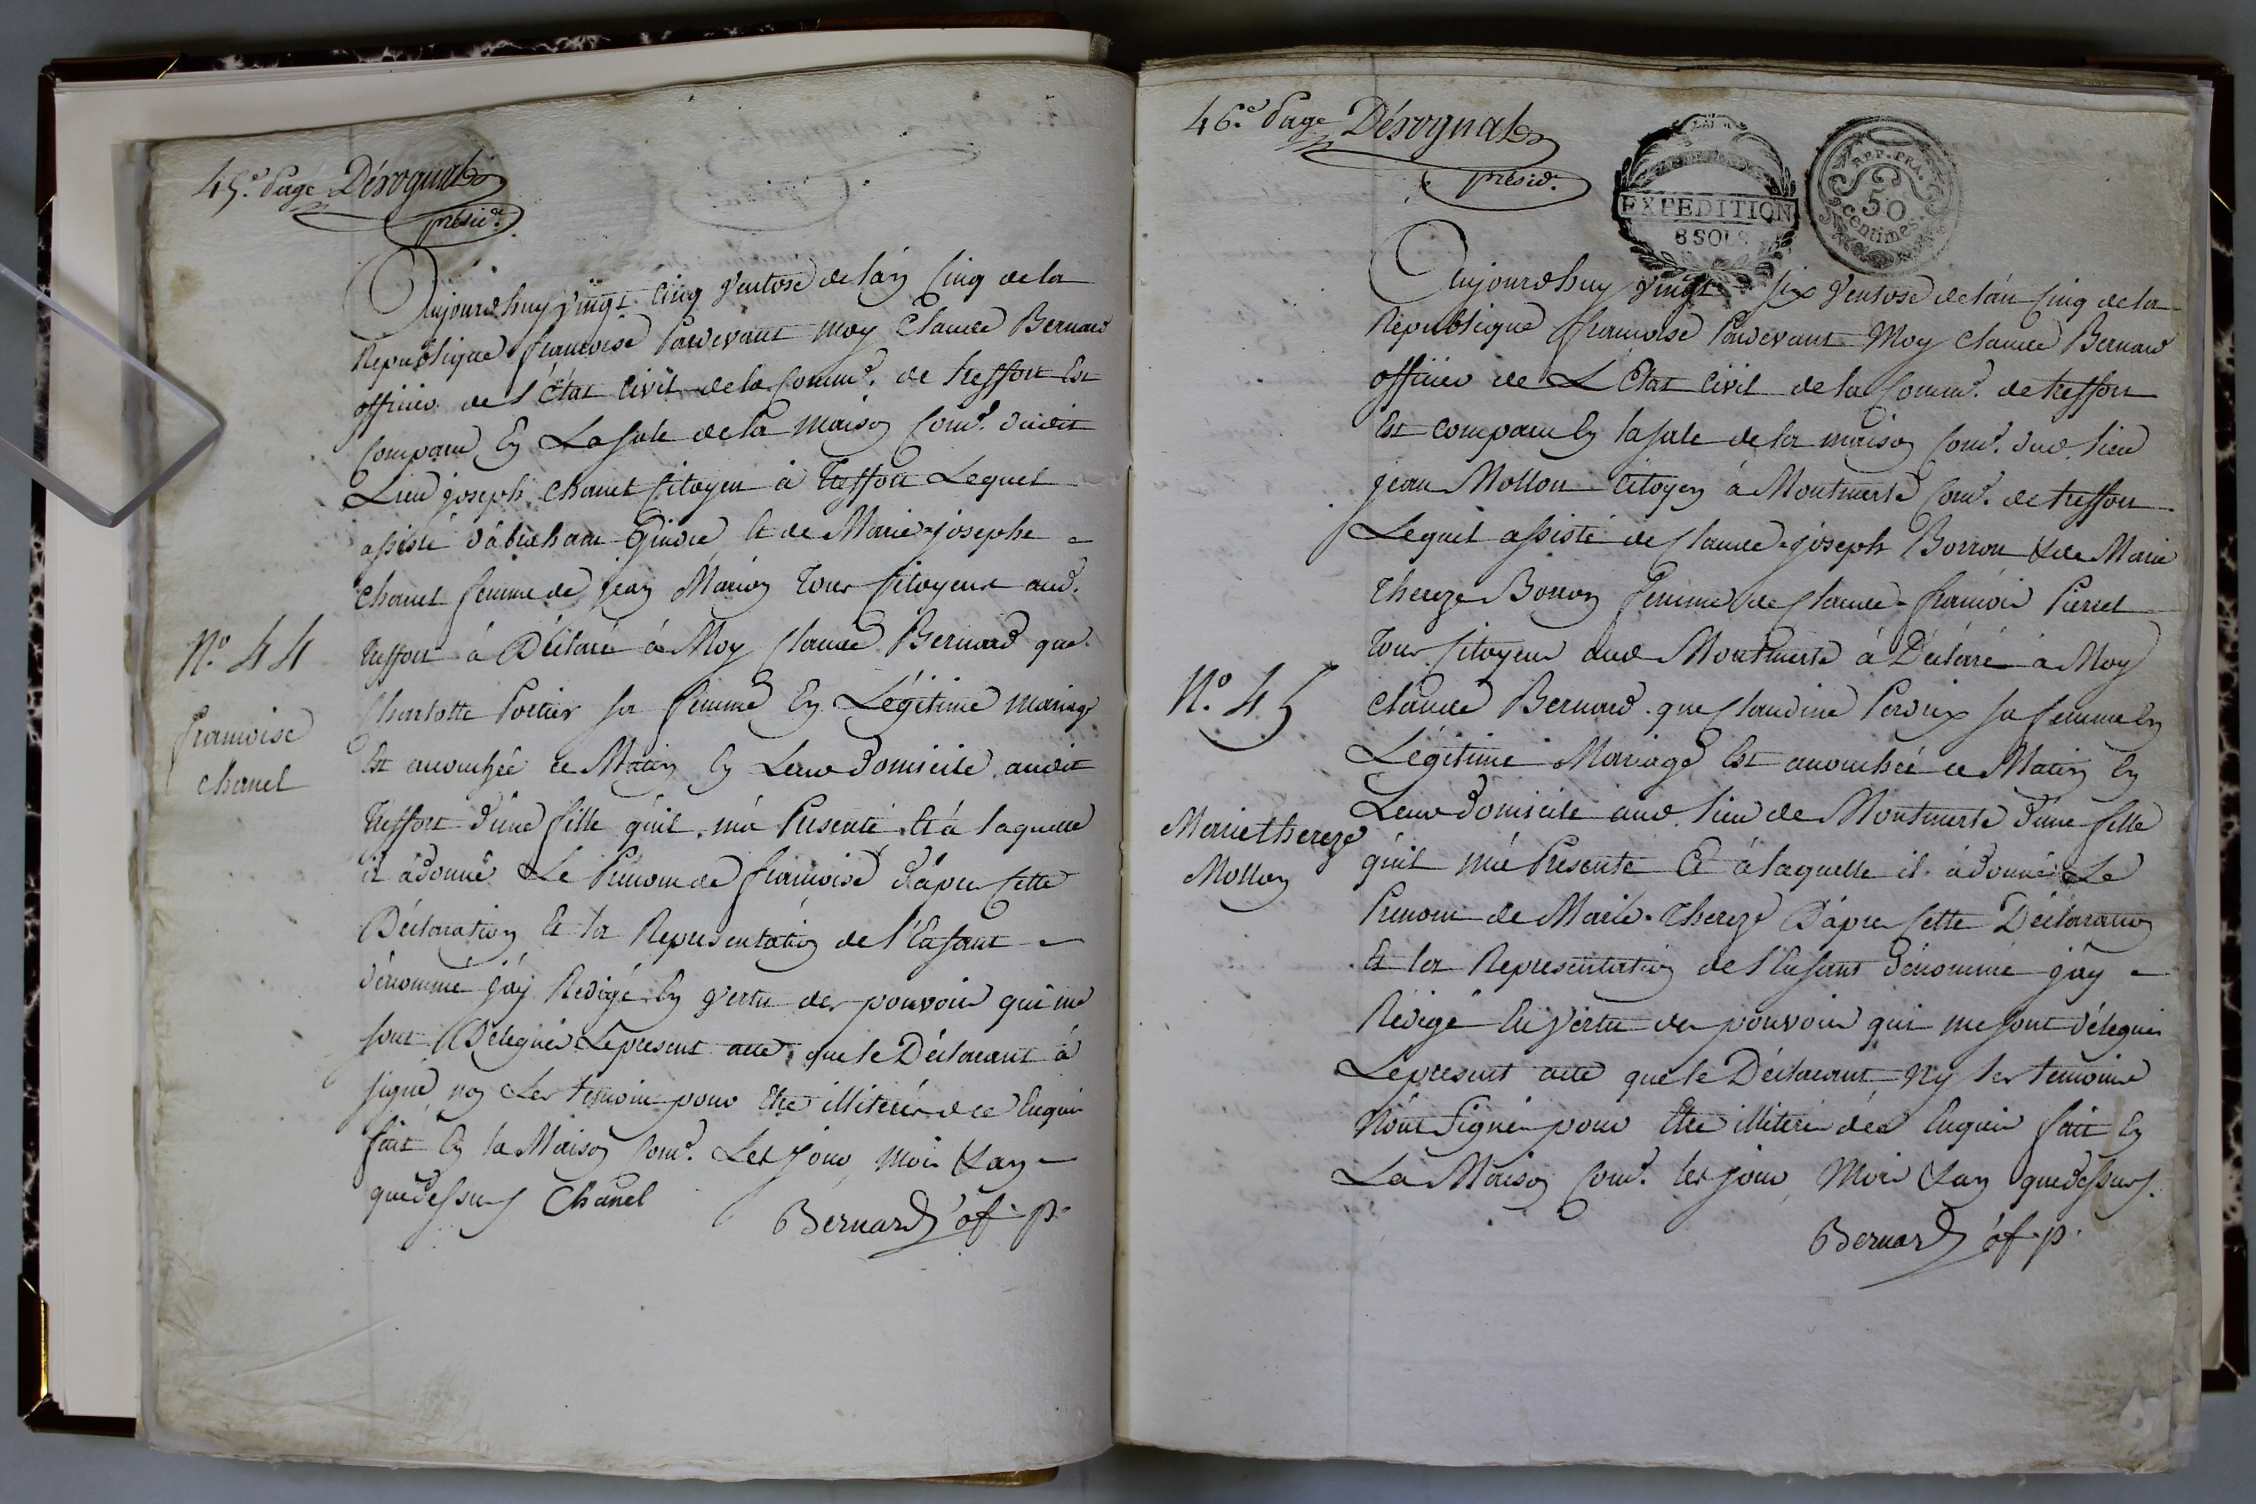 45.e Page Dérognat
présid.t
Aujourdhuy vingt cinq ventose de l'an cinq de la
Republique francoise Pardevant moy Claude Bernard
officier de l'état civil de la Comme. de treffort Est
Comparu En La sale de la maison Come. dudit
Lieu joseph chanel Citoyen à treffort Lequel
assisté d'abraham Gindre et de Marie-josephe
chanel femme de jean Marion tous Citoyens aud.
N.o 44
treffort à Déclaré à Moy Claude Bernard que
Charlotte Poitier sa femme En Légitime mariage
francoise
chanel
Est accouchée ce Matin En Leur Domicile audit
treffort d'une fille qu'il m'a Presenté Et à laquelle
il à donné Le Prenom de francoise d'après Cette
Déclaration Et la Representation de l'Enfant
dénommé j'ay Redigé En vertu des pouvoirs qui me
sont Délegués Le present acte que le Déclarant à
signé non Les temoins pour Etre illiterés de ce Enquis
fait En la Maison Come. Les jour mois & an
quedessus Chanel
Bernard of. p.
46.e Page Dérognat
présid.t
EXPEDITION
8 SOLS
REP. FRA.
50
centimes
Aujourdhuy vingt six ventose de l'an cinq de la
Republique francoise Pardevant Moy Claude Bernard
officier de L'Etat civil de la Comme. de treffort
Est comparu En la sale de la maison Come. dud. lieu
jean Mollon Citoyen à Montmerle Come. de treffort
Lequel assisté de Claude-joseph Borron & de Marie
Thereze Borron femme de Claude-francois Pierrel
tous Citoyens aud. Montmerle à Déclaré à Moy
N.o 45
Claude Bernard que Claudine Perdrix sa femme En
Légitime Mariage Est accouchée ce Matin En
Leur Domicile aud. lieu de Montmerle d'une fille
Mariethereze
Mollon
qu'il m'a Presenté Et à laquelle il à donné Le
Prenom de Marie-Thereze D'après Cette Déclaration
Et la Representation de l'Enfant dénommé j'ay
Redigé En vertu des pouvoirs qui me sont délegués
Le present acte que le Déclarant Ny les temoins
N'ont Signé pour Etre illiterés de ce Enquis fait En
La Maison Come. les jour Mois & an quedessus.
Bernard of. p.